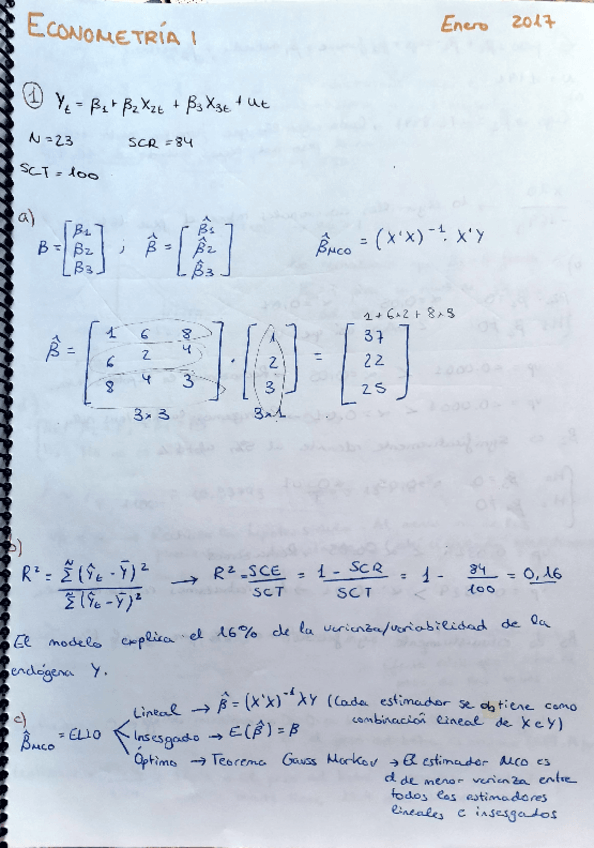 ECONOMETRÍA I
Enero 2017
① Yt = β1 + β2 X2t + β3 X3t + ut
N = 23 SCR = 84
SCT = 100
a)
β = [β1 β2 β3] ; β̂ = [β̂1 β̂2 β̂3] β̂MCO = (X'X)⁻¹ · X'Y
1 + 6×2 + 8×3
β̂ = [1 6 8 ; 6 2 4 ; 8 4 3] · [1 2 3] = [37 22 25]
3×3 3×1
b)
R² = Σ(Ŷt - Ȳ)² / Σ(Yt - Ȳ)² → R² = SCE/SCT = 1 - SCR/SCT = 1 - 84/100 = 0,16
El modelo explica el 16% de la varianza/variabilidad de la
endógena Y.
c)
β̂MCO = ELIO
Lineal → β̂ = (X'X)⁻¹ XY (Cada estimador se obtiene como
combinación lineal de X e Y)
Insesgado → E(β̂) = β
Óptimo → Teorema Gauss Markov → El estimador MCO es
el de menor varianza entre
todos los estimadores
lineales e insesgados